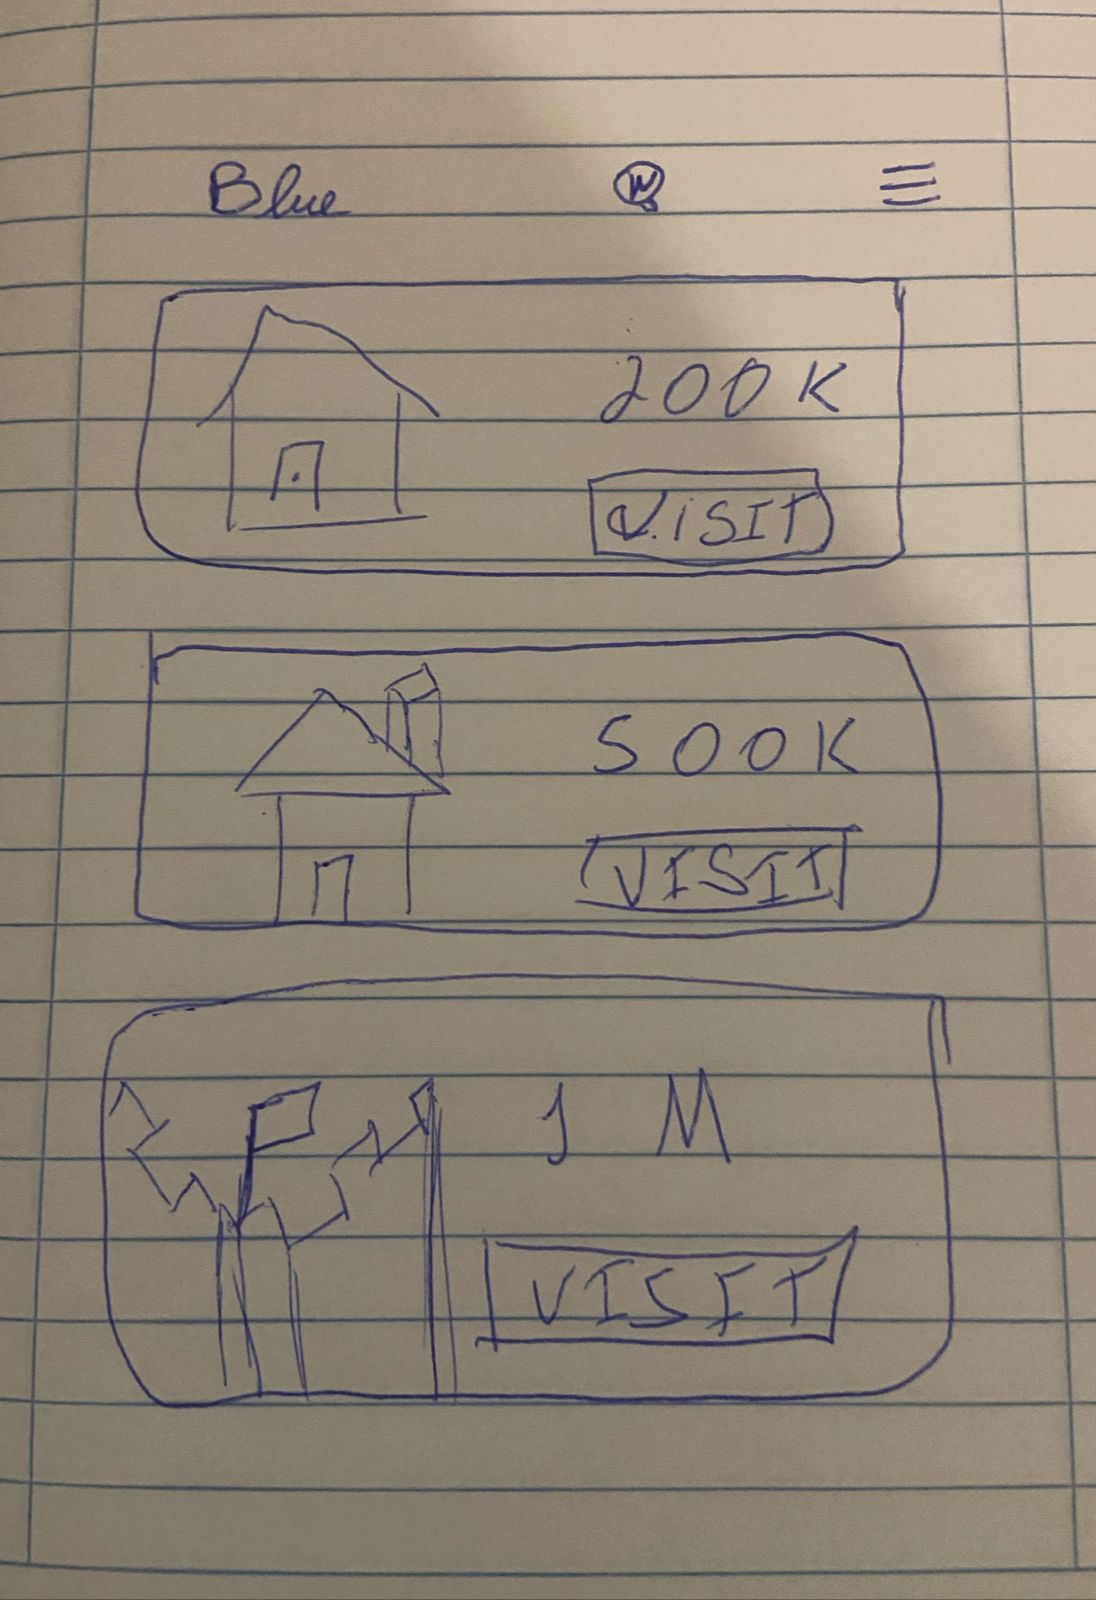 Blue
200K
VISIT
500K
VISIT
1 M
VISIT